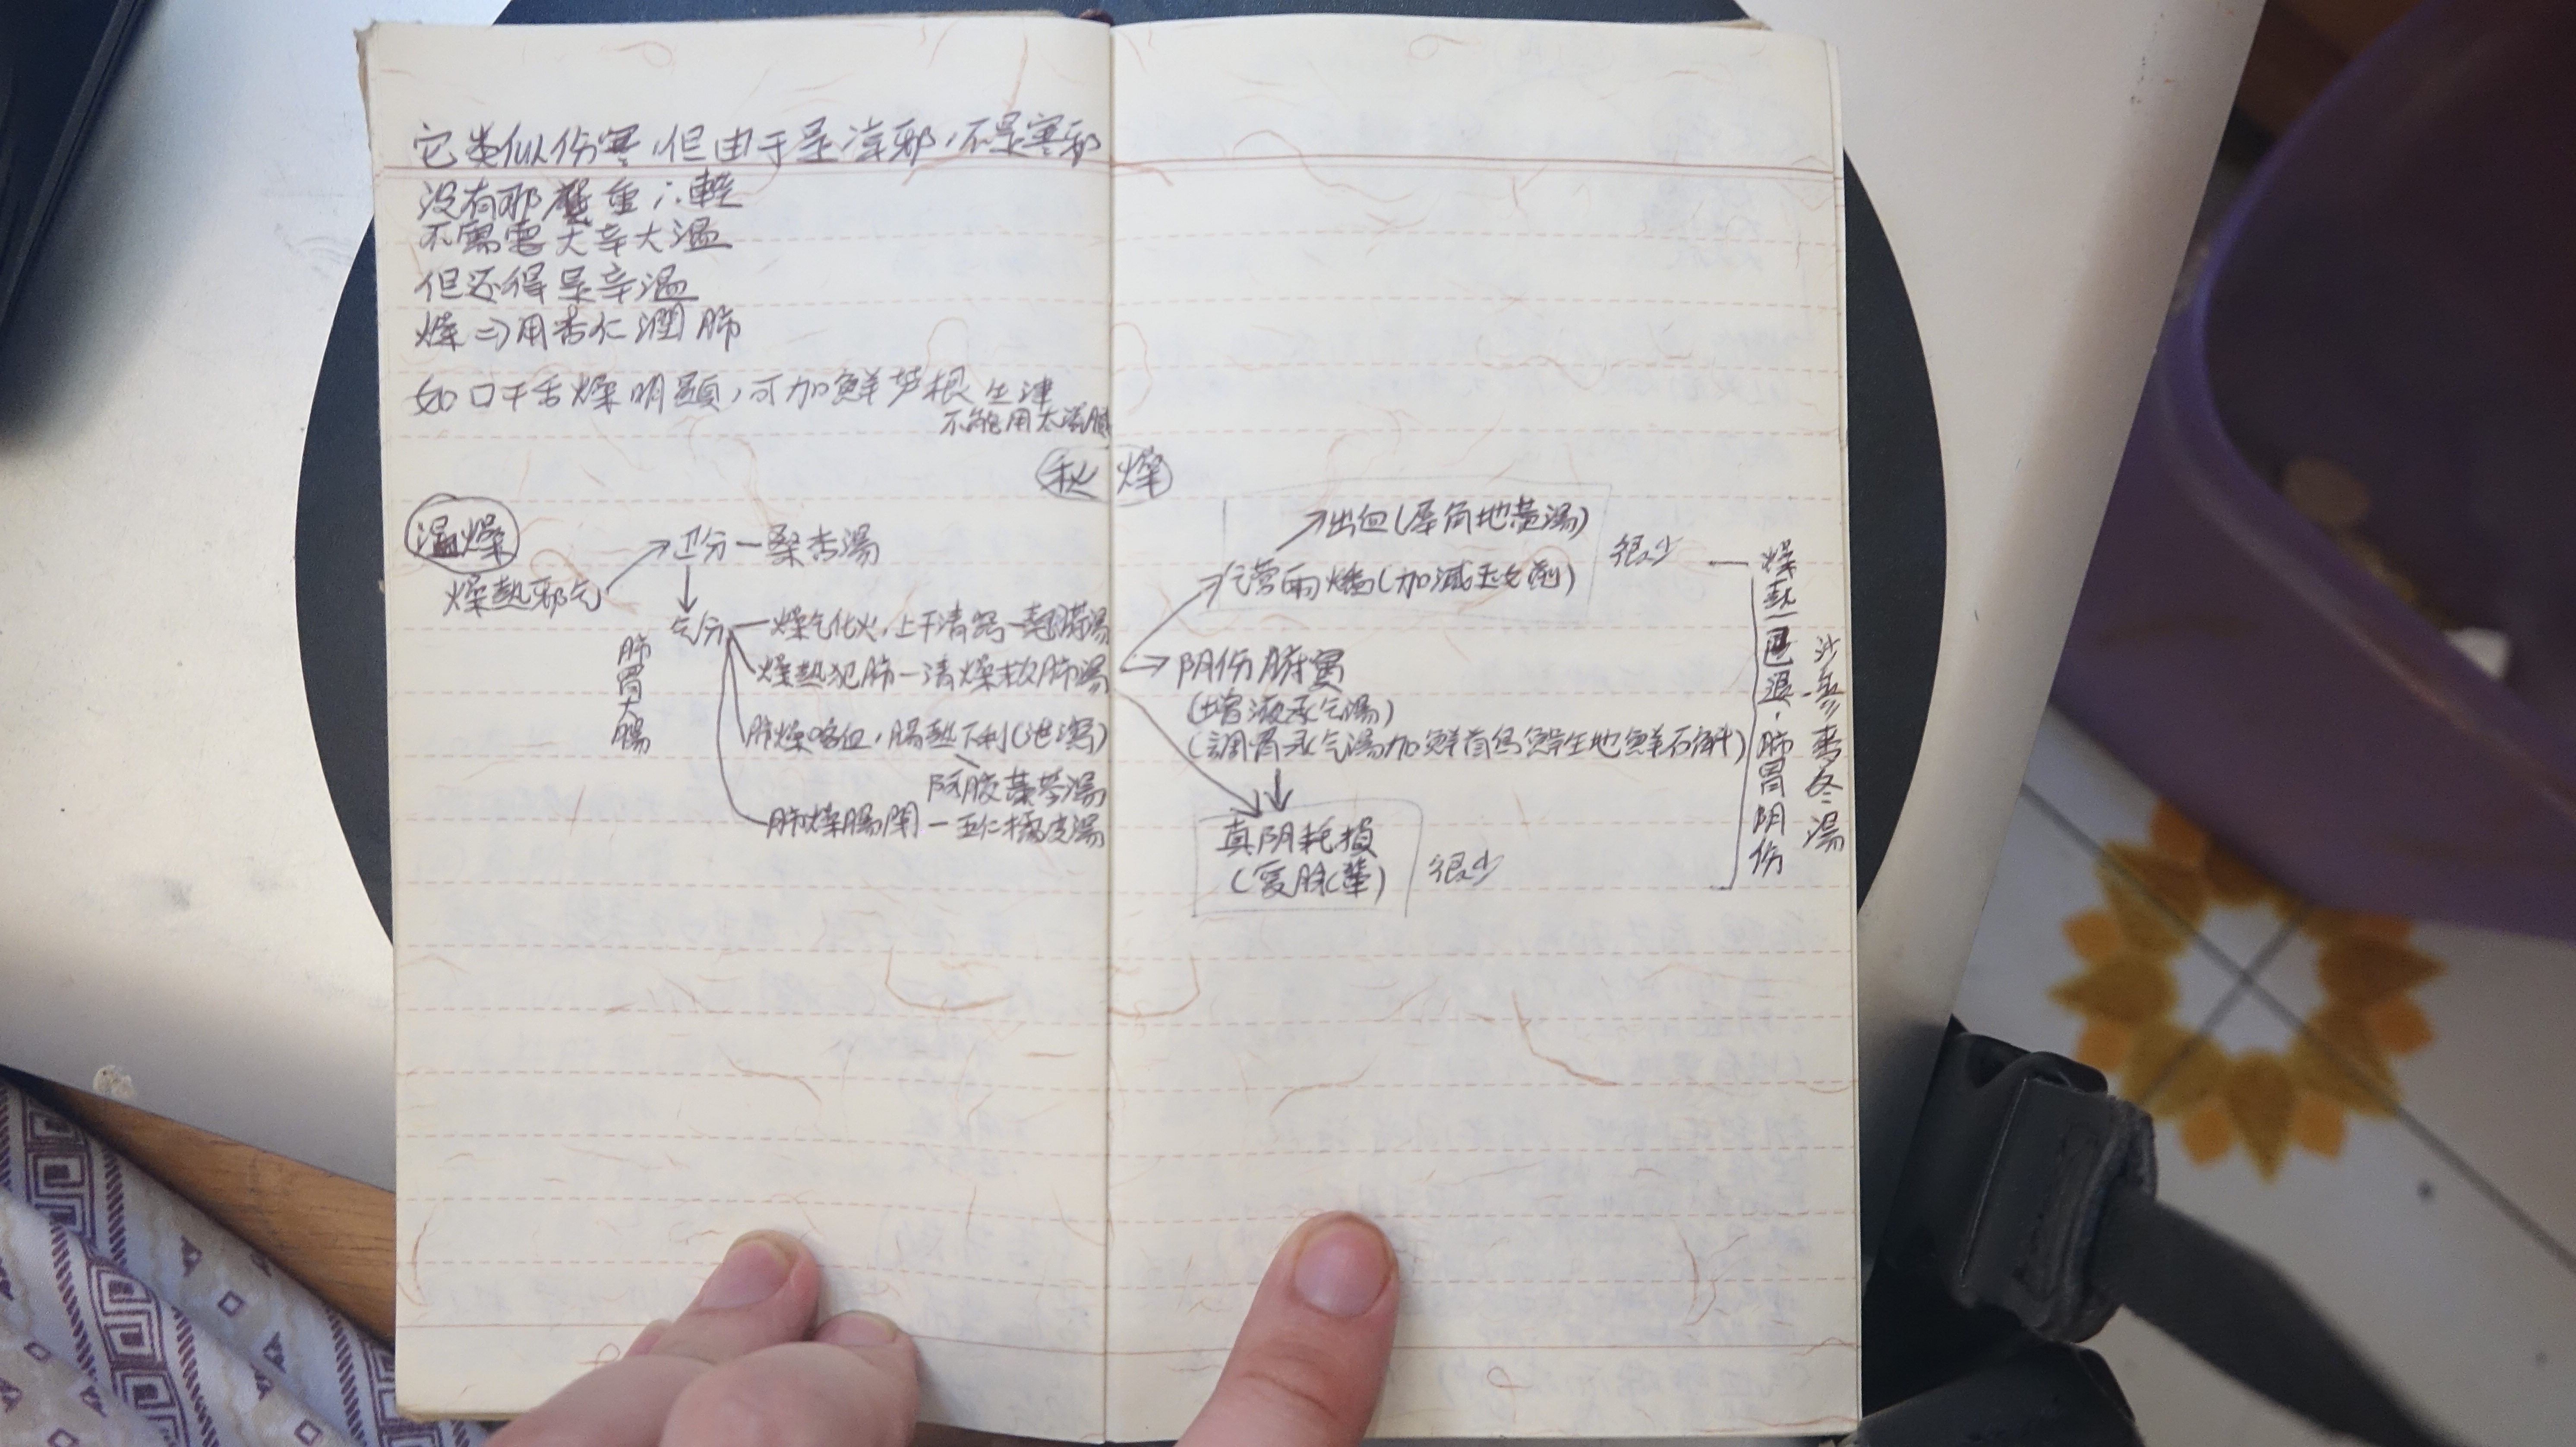 它类似伤寒,但由于是凉邪,不是寒邪
没有那麼重,∴輕
不需要大辛大温
但还得是辛温
燥⇒用杏仁潤肺
如口干舌燥明顯,可加鮮芦根生津
不能用太滋膩
秋燥
温燥
燥熱邪气
卫分—桑杏湯
气分
肺胃大腸
燥气化火,上干清窍—翹荷湯
燥熱犯肺—清燥救肺湯
肺燥咯血,腸熱下利(泄瀉)
阿胶黃芩湯
肺燥腸閉—五仁橘皮湯
出血(犀角地黄湯)
气营兩燔(加減玉女煎)
很少
阴伤腑實
(增液承气湯)
(調胃承气湯加鮮首烏鮮生地鮮石斛)
真阴耗損
(复脉輩)
很少
燥熱已退,肺胃阴伤
沙參麦冬湯